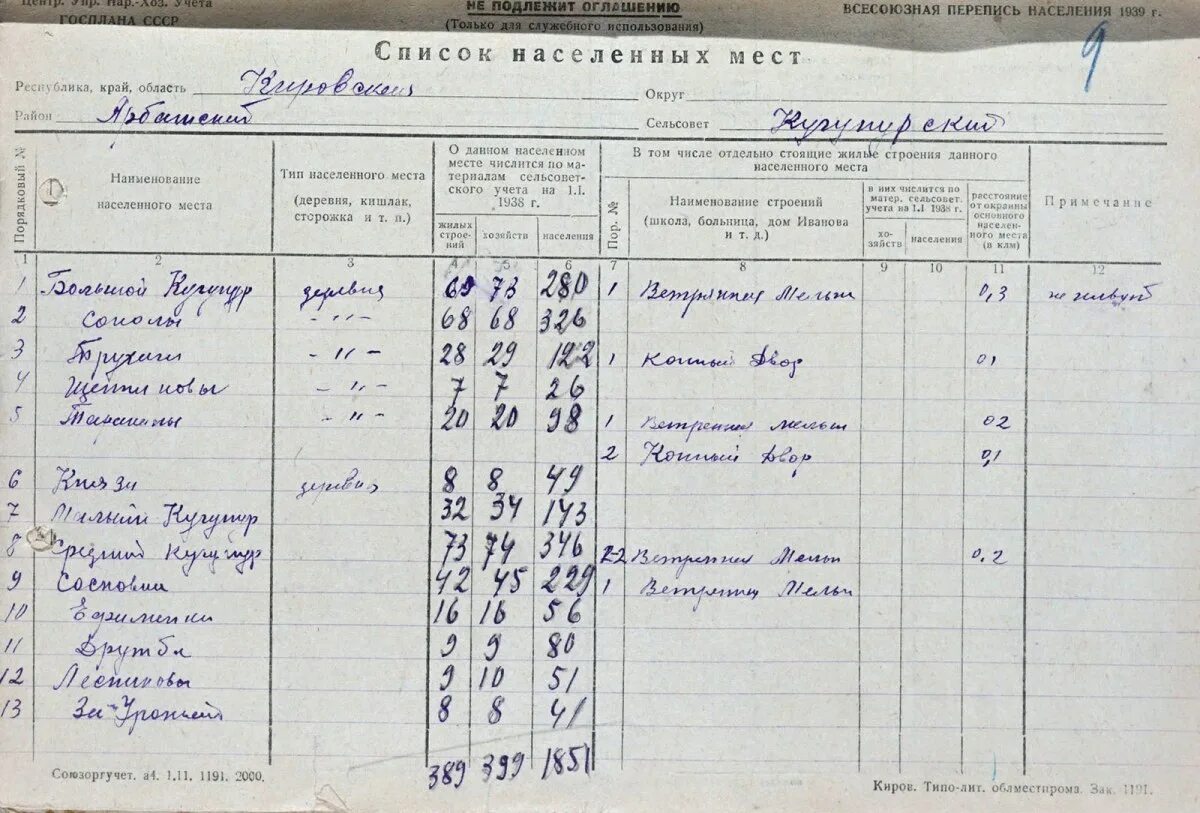 Центр. Упр. Нар.-Хоз. Учета
ГОСПЛАНА СССР
НЕ ПОДЛЕЖИТ ОГЛАШЕНИЮ
(Только для служебного использования)
ВСЕСОЮЗНАЯ ПЕРЕПИСЬ НАСЕЛЕНИЯ 1939 г.
9
Список населенных мест
Республика, край, область Кировская
Округ
Район Арбажский
Сельсовет Кугунурский
Порядковый №
Наименование населенного места
Тип населенного места
(деревня, кишлак, сторожка и т. п.)
О данном населенном месте числится по материалам сельсоветского учета на 1.I. 1938 г.
жилых строений
хозяйств
населения
В том числе отдельно стоящие жилые строения данного населенного места
Пор. №
Наименование строений
(школа, больница, дом Иванова и т. д.)
в них числится по матер. сельсовет. учета на 1.I 1938 г.
хозяйств
населения
расстояние от окраины основного населенного места (в клм)
Примечание
1 2 3 4 5 6 7 8 9 10 11 12
1 Большой Кугунур деревня 69 73 280 1 Ветрянная Мельн 0,3 не живут
2 Соколы - "- 68 68 326
3 Трухины - "- 28 29 122 1 Конный Двор 01
4 Щетниковы - "- 7 7 26
5 - "- 20 20 98 1 Ветренная мельн 02
2 Конный Двор 0,1
6 Князи деревня 8 8 49
7 Малый Кугунур 32 34 143
8 Средний Кугунур 73 74 346 2 Ветренная Мельн 0,2
9 Сосновка 42 45 229 1 Ветрянная Мельн
10 Ефименки 16 16 56
11 Дружба 9 9 80
12 Лесниковы 9 10 51
13 8 8 41
389 399 1851
Союзоргучет. а4. 1.11. 1191. 2000.
Киров. Типо-лит. облместпрома. Зак. 1191.